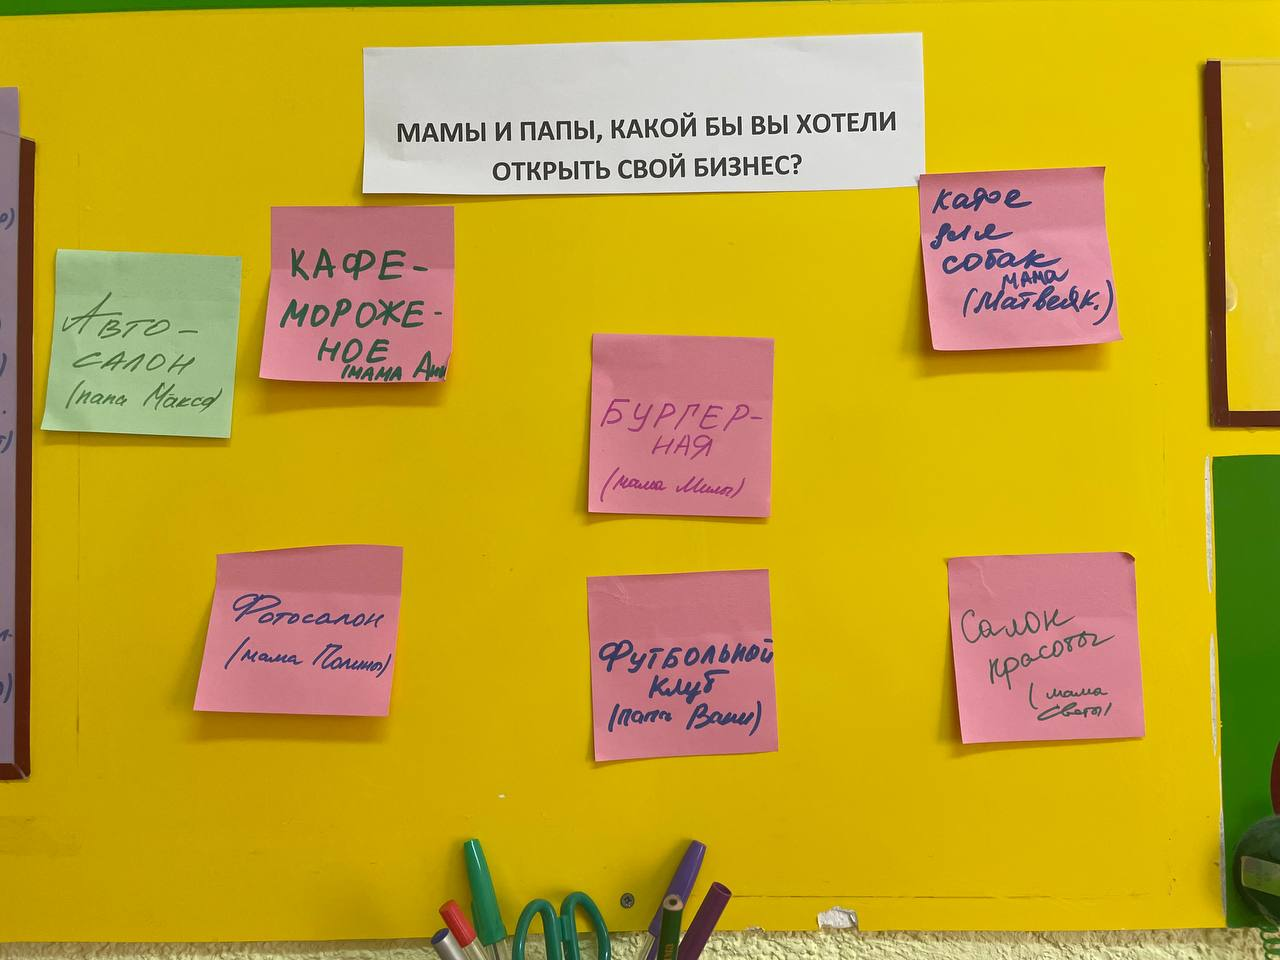 МАМЫ И ПАПЫ, КАКОЙ БЫ ВЫ ХОТЕЛИ
ОТКРЫТЬ СВОЙ БИЗНЕС?
АВТО-
САЛОН
(папа Макса)
КАФЕ-
МОРОЖЕ-
НОЕ
(МАМА Ани
кафе
для
собак
мама
(Матвея К.)
БУРГЕР-
НАЯ
(мама Милы)
Фотосалон
(мама Полины)
ФУТБОЛЬНЫЙ
клуб
(папа Вани)
Салон
красоты
(мама
Светы)